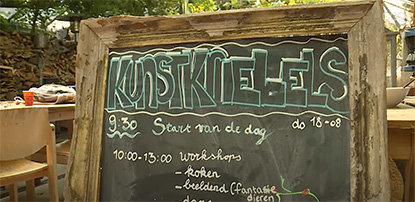 KUNSTKNEBELS
9:30 Start van de dag do 18-08
10:00-13:00 Workshops
- koken
- beeldend (fantasie
dieren)